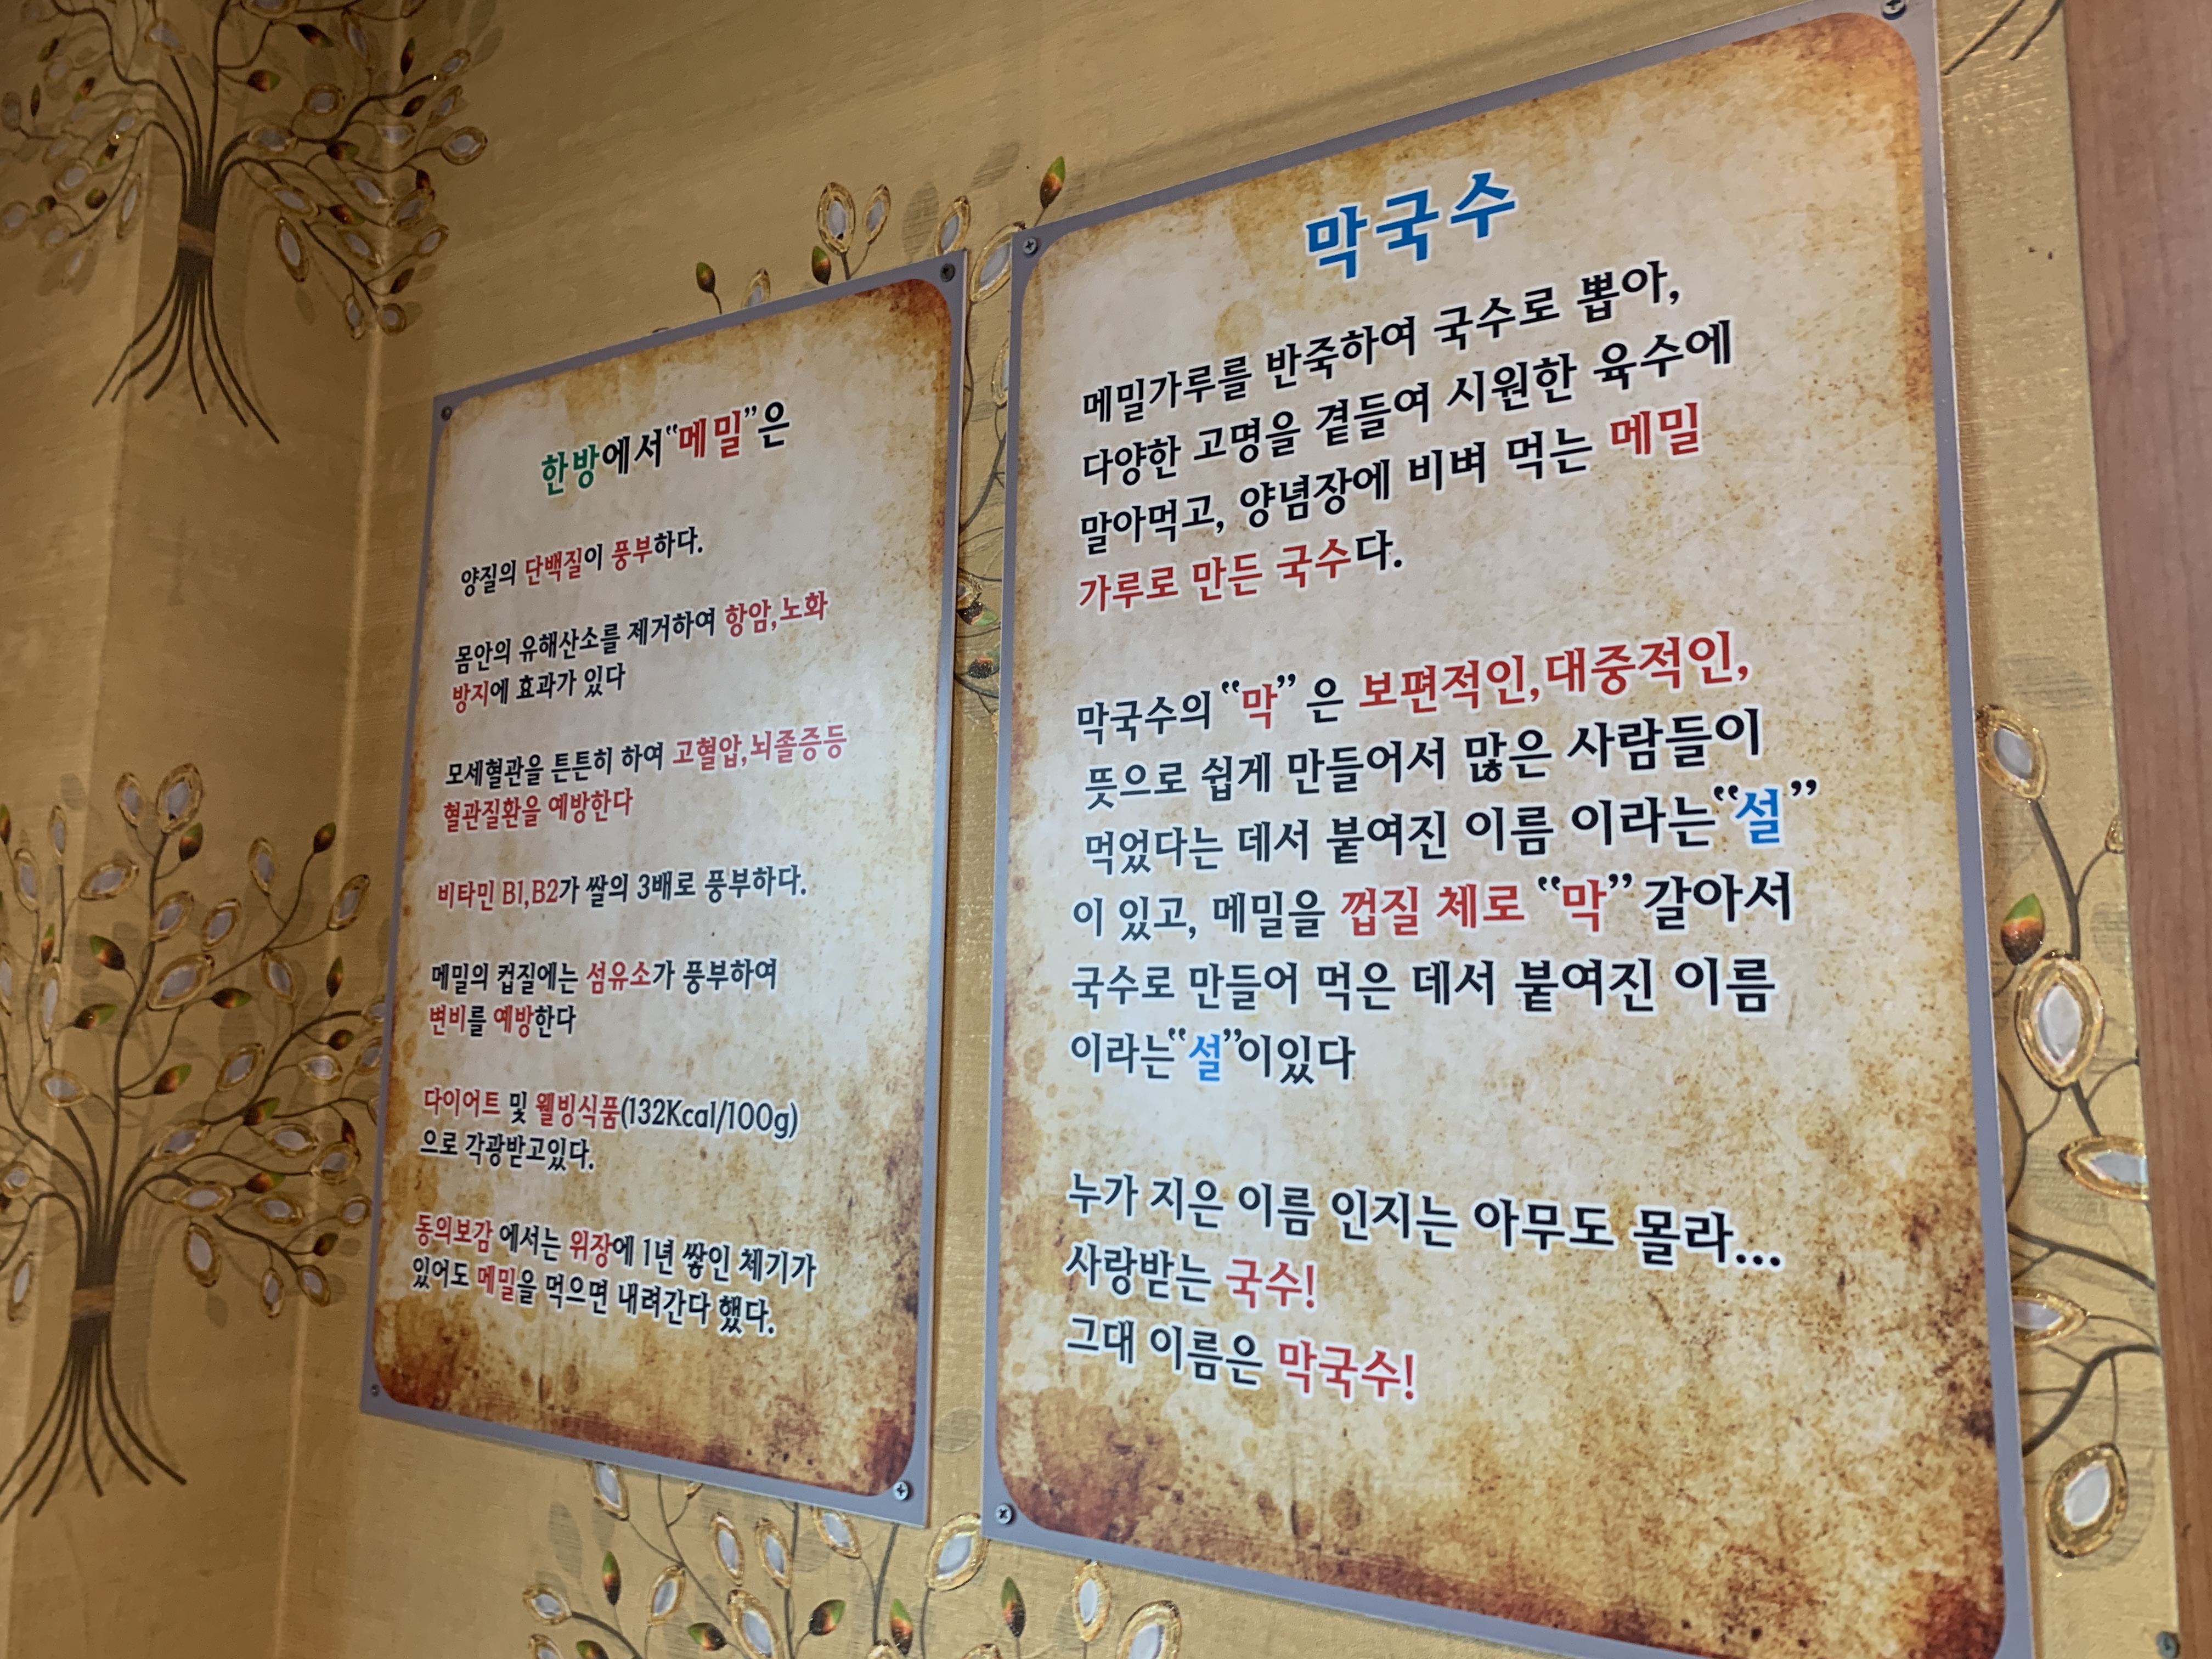 한방에서"메밀"은
양질의 단백질이 풍부하다.
몸안의 유해산소를 제거하여 항암,노화
방지에 효과가 있다
모세혈관을 튼튼히 하여 고혈압,뇌졸증등
혈관질환을 예방한다
비타민 B1,B2가 쌀의 3배로 풍부하다.
메밀의 컵질에는 섬유소가 풍부하여
변비를 예방한다
다이어트 및 웰빙식품(132Kcal/100g)
으로 각광받고있다.
동의보감 에서는 위장에 1년 쌓인 체기가
있어도 메밀을 먹으면 내려간다 했다.
막국수
메밀가루를 반죽하여 국수로 뽑아,
다양한 고명을 곁들여 시원한 육수에
말아먹고, 양념장에 비벼 먹는 메밀
가루로 만든 국수다.
막국수의 "막" 은 보편적인,대중적인,
뜻으로 쉽게 만들어서 많은 사람들이
먹었다는 데서 붙여진 이름 이라는"설"
이 있고, 메밀을 껍질 체로 "막" 갈아서
국수로 만들어 먹은 데서 붙여진 이름
이라는"설"이있다
누가 지은 이름 인지는 아무도 몰라...
사랑받는 국수!
그대 이름은 막국수!